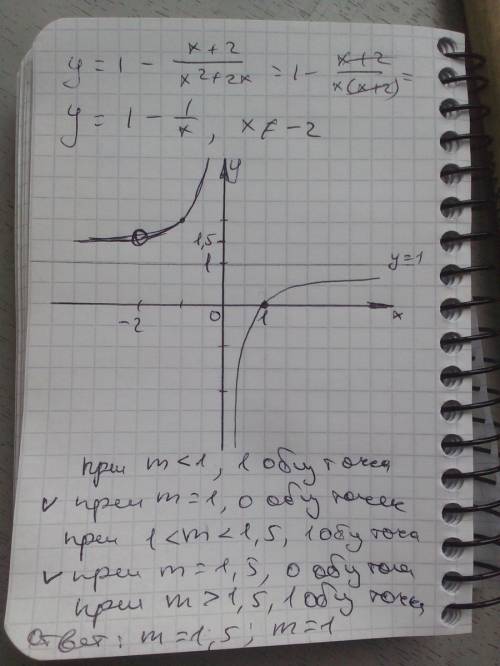 y = 1 - (x+2)/(x²+2x) = 1 - (x+2)/(x(x+2)) =
y = 1 - 1/x, x ≠ -2
y
1,5
1
y=1
-2
0
1
x
при m < 1, 1 общ точка
v при m = 1, 0 общ точек
при 1 < m < 1,5, 1 общ точка
v при m = 1,5, 0 общ точа
при m > 1,5, 1 общ точка
Ответ: m = 1,5; m = 1